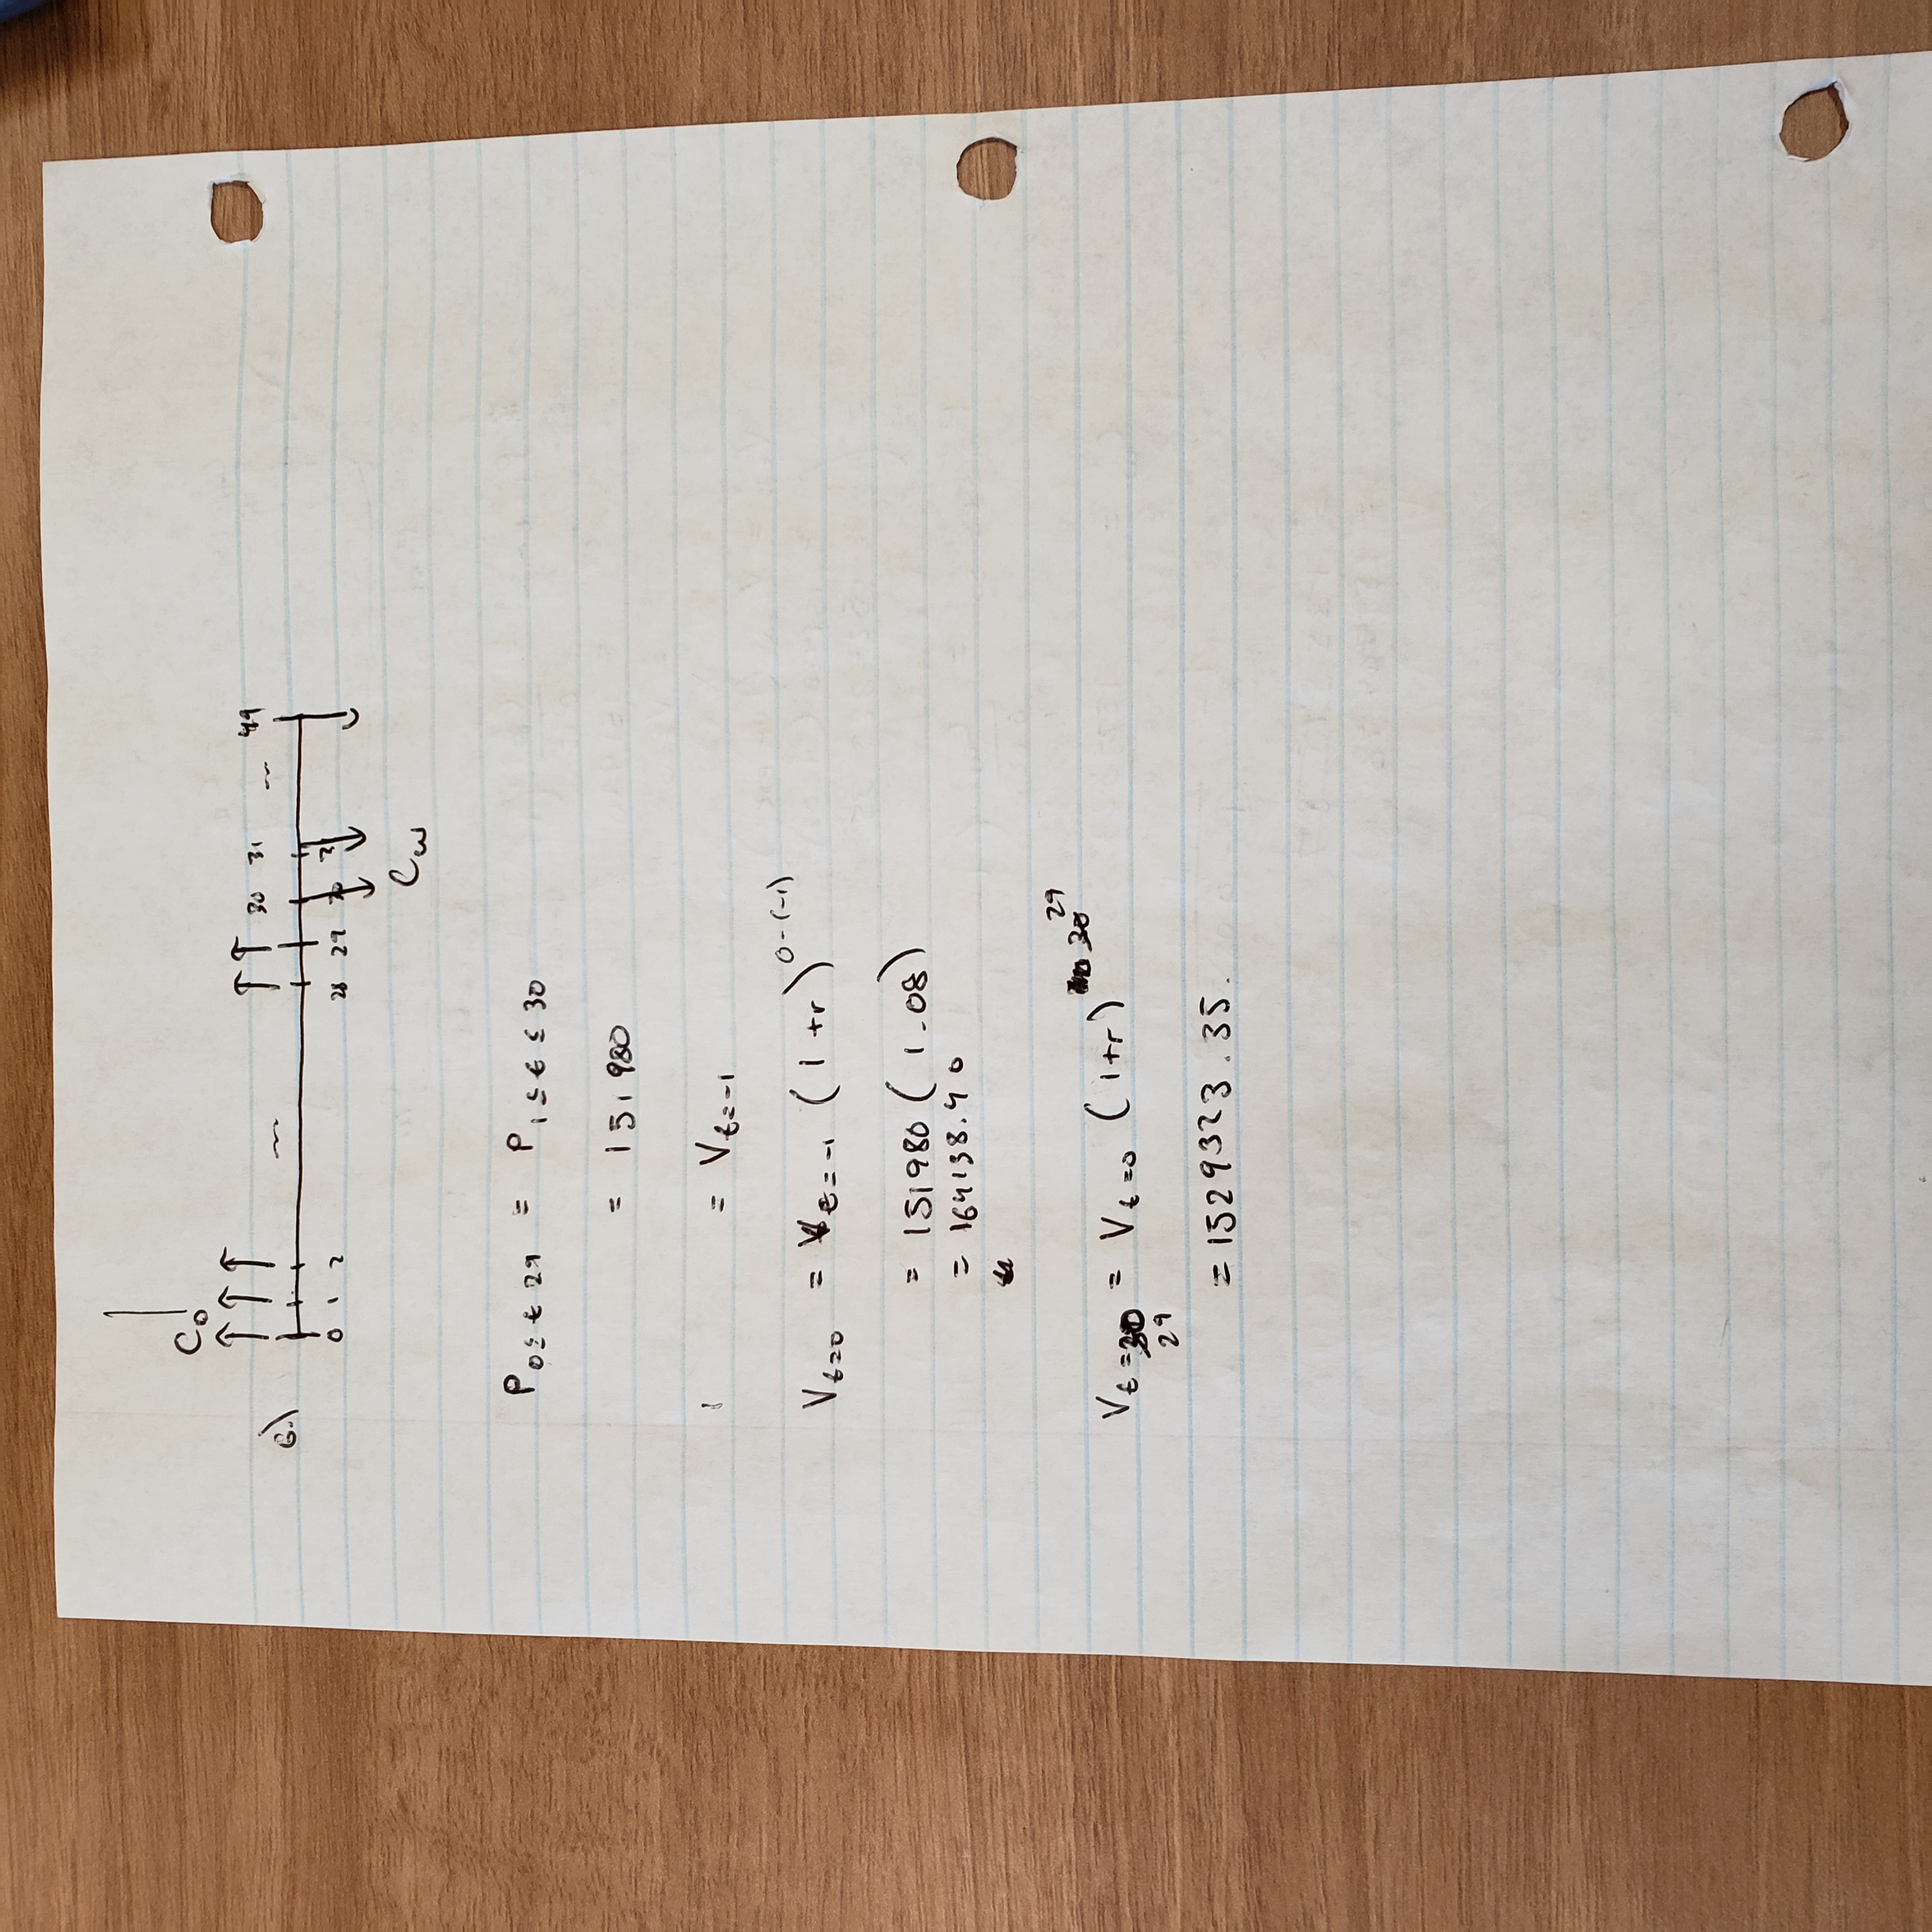 C₀
6.)
30 31 49
0 1 2 28 29 30 31
C_w
P 0≤ t 29 = P 1 ≤ t ≤ 30
= 151980
= V t=-1
V t=0 = V t=-1 (1+r)^0-(-1)
= 151980 (1.08)
= 164138.40
V t=30 29 = V t=0 (1+r)^30 29
= 1529323.35.